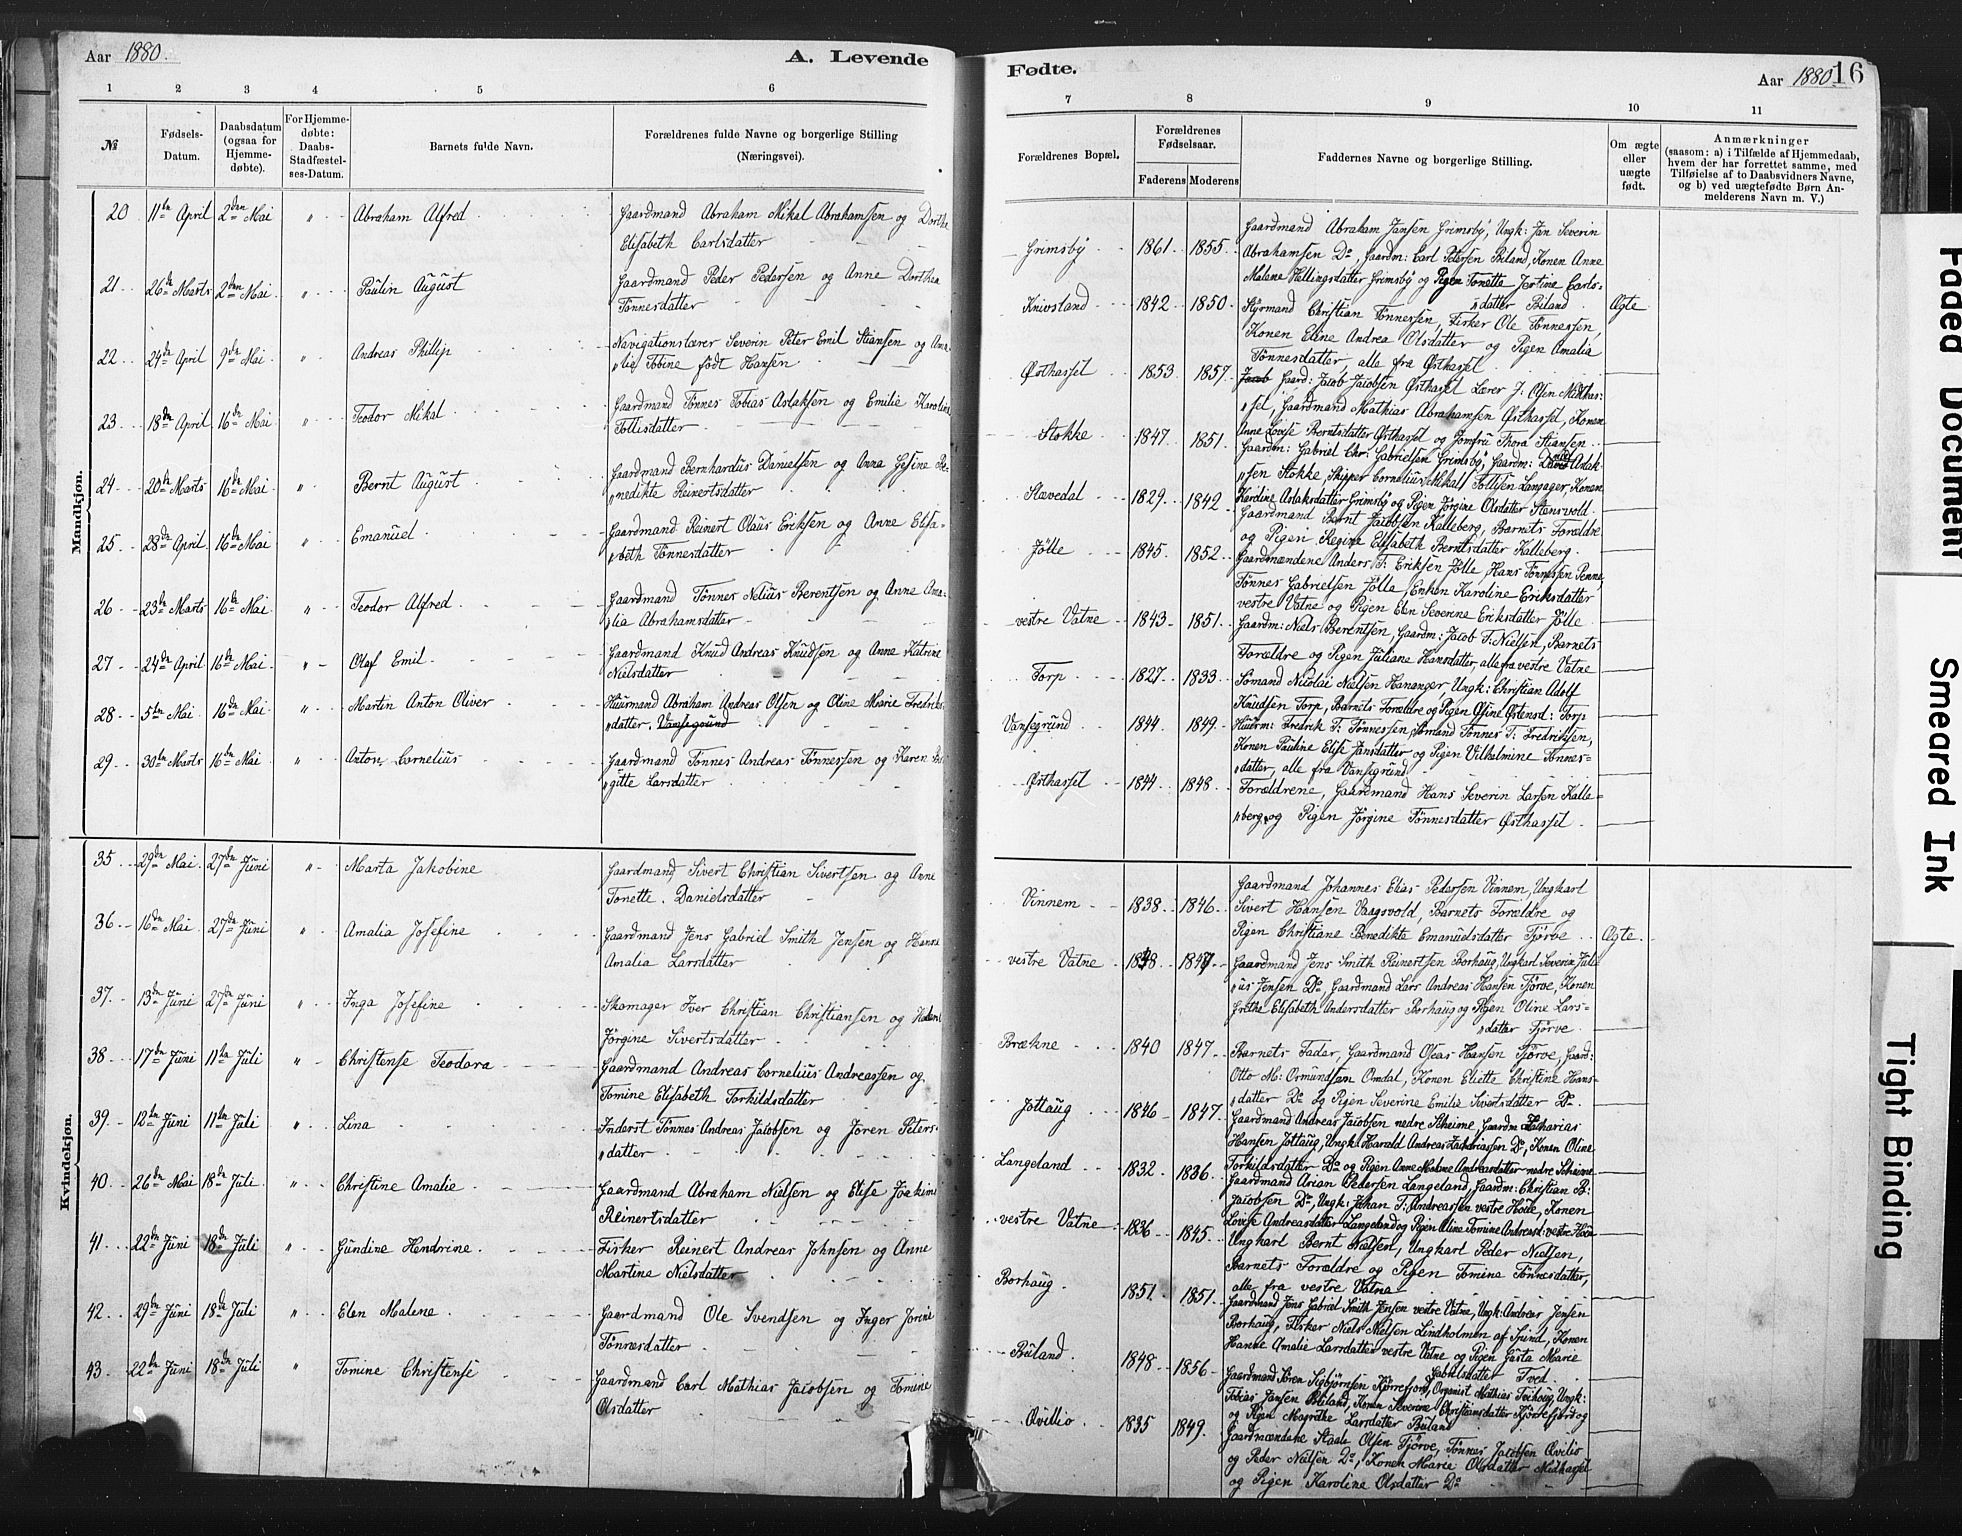 Aar 1880.
A. Levende
1 2 3 4 5 6
№
Fødsels-Datum.
Daabsdatum (ogsaa for Hjemme-døbte).
For Hjemme-døbte: Daabs-Stadfæstel-ses-Datum.
Barnets fulde Navn.
Forældrenes fulde Navne og borgerlige Stilling
(Næringsvei).
Mandkjøn.
20 11te April 2den Mai " Abraham Alfred Gaardmand Abraham Mikal Abrahamsen og Dorthe
Elisabeth Carlsdatter
21 26de Marts 2den Mai " Paulin August Gaardmand Peder Pedersen og Anne Dorthea
Tønnesdatter
22 24de April 9de Mai " Andreas Phillip Navigationslærer Severin Peter Emil Stiansen og Ama-
"lie Tobine født Hansen
23 18de April 16de Mai " Teodor Mikal Gaardmand Tønnes Tobias Aslaksen og Emilie Karoline
Tollisdatter
24 20de Marts 16de Mai " Bernt August Gaardmand Bernhardus Danielsen og Anna Gesine Be-
"nedikte Reinertsdatter
25 28de April 16de Mai " Emanuel Gaardmand Reinert Olaus Eriksen og Anne Elisa-
"beth Tønnesdatter
26 23de Marts 16de Mai " Teodor Alfred Gaardmand Tønnes Nelius Berentsen og Anne Ama-
"lia Abrahamsdatter
27 24de April 16de Mai " Olaf Emil Gaardmand Knud Andreas Knudsen og Anne Katrine
Nielsdatter
28 5te Mai 16de Mai " Martin Anton Oliver Huusmand Abraham Andreas Olsen og Oline Marie Fredriks-
"datter. Vansegrund
29 30te Marts 16de Mai " Anton Cornelius Gaardmand Tønnes Andreas Tønnessen og Karen Bir-
"gitte Larsdatter
Kvindekjøn.
35 29de Mai 27de Juni " Marta Jakobine Gaardmand Sivert Christian Sivertsen og Anne
Tonette Danielsdatter
36 16de Mai 27de Juni " Amalia Josefine Gaardmand Jens Gabriel Smith Jensen og Hanne
Amalia Larsdatter
37 13de Juni 27de Juni " Inga Josefine Skomager Iver Christian Christiansen og
Jörgine Sivertsdatter
38 17de Juni 11te Juli " Christense Teodora Gaardmand Andreas Cornelius Andreassen og
Tomine Elisabeth Torkildsdatter
39 12te Juni 11te Juli " Lina Inderst Tønnes Andreas Jacobsen og Joren Peters-
"datter
40 26de Mai 18de Juli " Christine Amalie Gaardmand Abraham Nielsen og Elise Joakime
Reinertsdatter
41 22de Juni 18de Juli " Gundine Hendrine Fisker Reinert Andreas Johnsen og Anne
Martine Nielsdatter
42 29de Juni 18de Juli " Elen Malene Gaardmand Ole Svendsen og Inger Jorine
Tønnesdatter
43 22de Juni 18de Juli " Tomine Christense Gaardmand Carl Mathias Jacobsen og Tomine
Olsdatter
Fødte.
Aar 1880. 16
7 8 9 10 11
Forældrenes Bopæl.
Forældrenes Fødselsaar.
Faderens Moderens
Faddernes Navne og borgerlige Stilling.
Om ægte eller uægte født.
Anmærkninger
(saasom: a) i Tilfælde af Hjemmedaab,
hvem der har forrettet samme, med
Tilføielse af to Daabsvidners Navne,
og b) ved uægtefødte Børn An-
melderens Navn m. V.)
Gaardmand Abraham Jansen Grimsby, Ungk: Jan Severin
Grimsby 1861 1855 Abrahamsen Do, Gaardm: Carl Petersen Biland, Konen Anne
Malene Hellingsdatter Grimsby og Pigen Tonette Jostine Carls-
"datter Biland
Knivsland 1842 1850 Styrmand Christian Tønnessen, Fisker Ole Tønnessen, Ægte
Konen Eline Andrea Olsdatter og Pigen Amalia
Tønnesdatter, alle fra Østhassel
Østhassel 1853 1857 Gaard: Jacob Jacobsen Østhassel Lærer J: Olsen Midthas-
"sel, Gaardmand Mathias Abrahamsen Østhassel, Konen
Anne Lovise Berntsdatter Østhassel og Jomfru Thora Stiansen
Stokke 1847 1851 Gaardm: Gabriel Chr: Gabrielsen Grimsby, Gaardm: David Aslak-
"sen Stokke, Skipper Cornelius Mikal Tollisen Langager, Konen
Kardine Aslaksdatter Grimsby og Pigen Jörgine Olsdatter Stensvold
Stavedal 1829 1842 Gaardmand Bernt Jacobsen Kalleberg, Barnets Forældre
og Pigen Regine Elisabeth Berntsdatter Kalleberg
Jölle 1845 1852 Gaardmændene Anders T: Eriksen Jölle, Hans Tønnessen Penne,
Tönnes Gabrielsen Jölle, Enken Karoline Eriksdatter
vestre Vatne og Pigen Elen Severine Eriksdatter Jölle
vestre Vatne 1843 1851 Gaardm: Niels Berentsen, Gaardm: Jacob T: Nielsen, Barnets
Forældre og Pigen Juliane Hansdatter, alle fra vestre Vatne
Torp 1827 1833 Sömand Nicolai Nielsen Hananger, Ungk: Christian Adolf
Knudsen Torp, Barnets Forældre og Pigen Osine Østensd: Torp
Vansegrund 1844 1849 Huusm: Fredrik T: Tønnessen, Sømand Tønnes T: Fredriksen,
Konen Pauline Elise Jansdatter og Pigen Vilhelmine Tønnes-
"datter, alle fra Vansegrund
Østhassel 1844 1848 Forældrene, Gaardmand Hans Severin Larsen Kalle-
"berg, og Pigen Jörgine Tønnesdatter Østhassel
Gaardmand Johannes Elias Pedersen Vinnem, Ungkarl
Vinnem 1838 1846 Sivert Hansen Vaagsvold, Barnets Forældre og
Pigen Christiane Benedikte Emanuelsdatter Tjörve Ægte
vestre Vatne 1848 1847 Gaardmand Jens Smith Reinertsen Borhaug, Ungkarl Severin Juli-
"us Jensen Do, Gaardmand Lars Andreas Hansen Tjörve, Konen
Grethe Elisabeth Andersdatter Borhaug og Pigen Oline Lars-
"datter Tjörve
Brækne 1840 1847 Barnets Fader, Gaardmand Oseas Hansen Tjörve, Gaard:
Otto M: Ormundsen Omdal, Konen Eliette Christine Hans-
"datter Do og Pigen Severine Emilie Sivertsdatter Do
Jøllaug 1846 1847 Gaardmand Andreas Jacobsen nedre Skeime, Gaardm Zakarias
Hansen Jøllaug, Ungk: Harald Andreas Zakariassen Do, Konen Oline
Torkildsdatter Do og Pigen Anne Malene Andreasdatter nedre Skeime
Langeland 1832 1836 Gaardmand Arian Pedersen Langeland, Gaardm: Christian B:
Jacobsen Do, Ungk: Johan T: Andreassen vestre Hoile, Konen
Lovise Andreasdatter Langeland og Pigen Oline Tomine Andreasd: vestre
vestre Vatne 1836 1845 Ungkarl Bernt Nielsen, Ungkarl Peder Nielsen,
Barnets Forældre og Pigen Tomine Tønnesdatter,
alle fra vestre Vatne
Borhaug 1851 1851 Gaardmand Jens Gabriel Smith Jensen vestre Vatne, Ungk: Andreas Jensen
Borhaug, Fisker Niels Nielsen Lindholmen af Spind, Konen
Hanne Amalie Larsdatter vestre Vatne og Pigen Gusta Marie
Gabrielsdatter Tved
Buland 1848 1856 Gaardmand Sören Sigbjörnsen Kjörrefjord, Organist Mathias Trihoug, Ungk:
Tobias Jansen Buland, Konen Severine Christiansdatter Kjörrefjord og
og Pigen Magrethe Larsdatter Buland
Qvillio 1835 1849 Gaardmændene Staale Olsen Tjörve, Tønnes Jacobsen Qvilio
og Peder Nielsen Do, Konen Marie Olsdatter Midhassel
og Pigen Karoline Olsdatter Do
Faded Document
Smeared Ink
Tight Binding